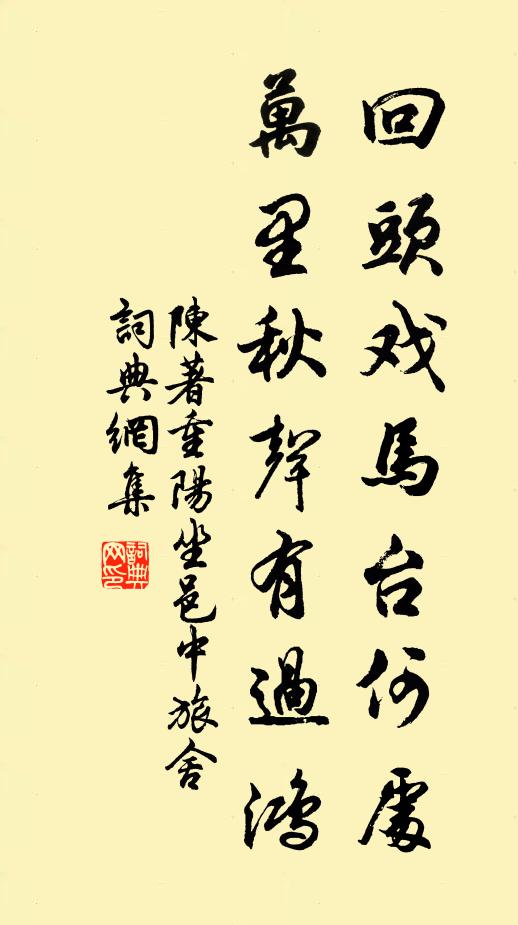 回頭戏馬台何處
萬里秋聲有過鴻
陳著重陽坐邑中旅舍
詞典網集
詞典网印